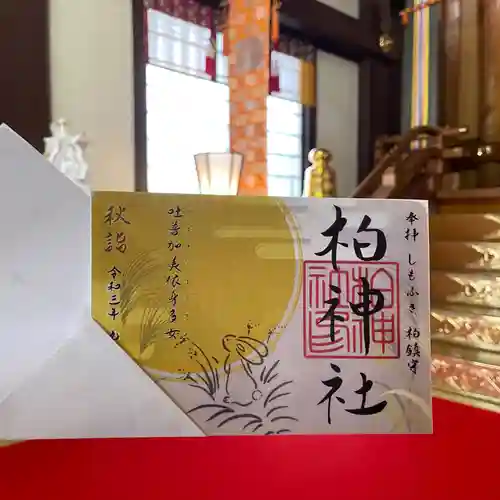 奉拝 しもふさ 柏鎮守
柏神社
吐普加美依身多女
秋詣
令和三年